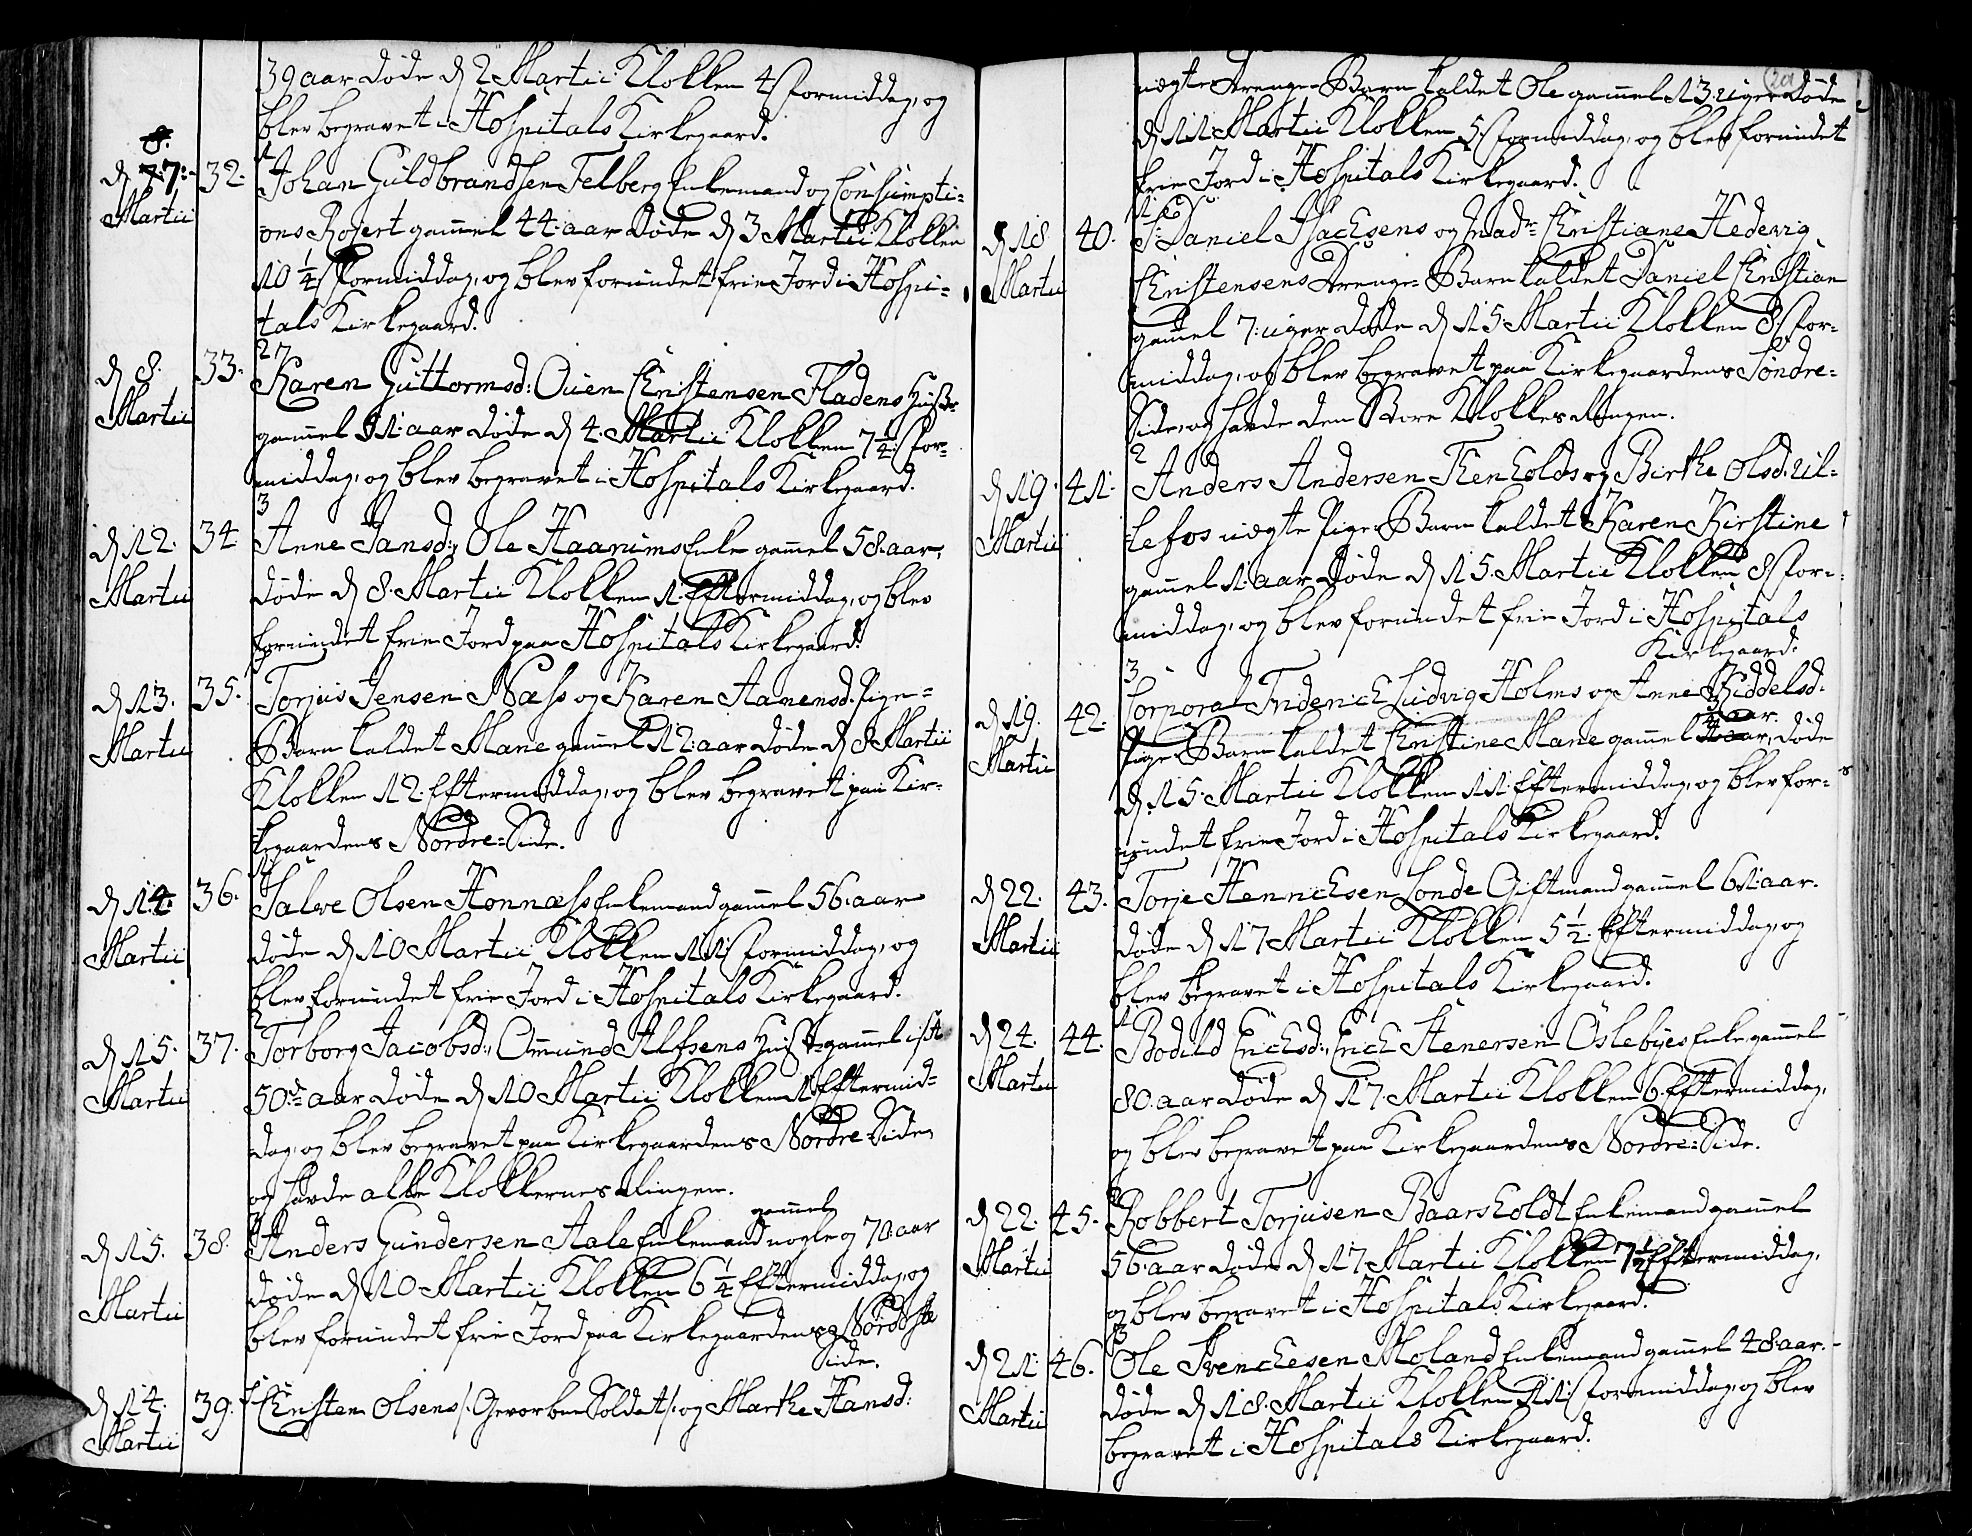 39 aar døde d 2 Martii Klokken 4 Formiddag, og
blev begravet i Hospitals Kirkegaard.
d 7: Martii
32.
1
Johan Guldbrandsen Felberg Enkemand og Consumpti-
ons Rosert gamel 44: aar døde d 3 Martii Klokken
10 1/4 Formiddag, og blev forundet frie Jord i Hospi-
tals Kirkegaard.
d 8. Martii
33.
2
Karen Guttormsd: Ouen Christensen Fladens Hustr
gamel 51: aar døde d 4. Martii Klokken 7 1/4 For-
middag, og blev begravet i Hospitals Kirkegaard.
d 12. Martii
34
3
Anne Jansd, Ole Haanims Enke gamel 58. aar,
døde d 8. Martii Klokken 1. Eftermiddag, og blev
forundet frie Jord paa Hospitals Kirkegaard.
d 13. Martii
35.
Torjus Jensen Næss og Karen Aanensd. Pige-
Barn kaldet Marie gamel 12: aar døde d 8 Martii
Klokken 12 Eftermiddag, og blev begravet paa Kir-
kegaardens Nordre-Side.
d 14. Martii
36.
1
Salve Olsen Honnæss Enkemand gamel 56. aar
døde d 10 Martii Klokken 11 Formiddag, og
blev forundet frie Jord i Hospitals Kirkegaard.
d 15. Martii
37.
2
Torborg Jacobsd., Omund Alfsens Hustr gamel
50 aar døde d 10 Martii Klokken 1 Eftermid-
dag, og blev begravet paa Kirkegaardens Nordre-Side
og havde alle Klokkernes Ringen.
d 15. Martii
38.
3
gamel
Anders Gundersen Aale Enkemand nogle og 70 aar
døde d 10 Martii Klokken 6 1/4 Eftermiddag, og
blev forundet frie Jord paa Kirkegaardens Nordre
Side.
d 14. Martii
39.
Christen Olsens /: Gevorben Soldat :/ og Marthe Hansd:
201
uegte Drenge-Barn kaldet Ole gamel 13. uger døde
d 11 Martii Klokken 5 Formiddag, og blev forundet
frie Jord i Hospitals Kirkegaard.
d 18 Martii
40.
1
S: Daniel Isachsens og Mad: Christiane Hedevig
Christensens Drenge-Barn kaldet Daniel Christian
gamel 7: uger døde d 15 Martii Klokken 8 For-
middag, og blev begravet paa Kirkegaardens Søndre-
Side, og havde den Store Klokkes Ringen.
d 19. Martii
41.
2
Anders Andersen Fienholds og Birthe Olsd: Ul-
lefos uegte Pige-Barn kaldet Karen Kirstine
gamel 1. aar døde d 15. Martii Klokken 8 For-
middag, og blev forundet frie Jord i Hospitals
Kirkegaard.
d 19. Martii
42.
3
Corporal Friderich Ludvig Holms og Anne Kiddelsd.
Pige-Barn kaldet Christine Marie gamel aar, døde
d 15. Martii Klokken 11 Eftermiddag, og blev for-
undet frie Jord i Hospitals Kirkegaard.
d 22. Martii
43.
Torje Henrichsen Londe Giftmand gamel 61: aar.
døde d 17 Martii Klokken 5 1/2 Eftermiddag, og
blev begravet i Hospitals Kirkegaard.
d 24. Martii
44.
1
Bodild Erichsd., Erich Stenersen Oslebyes Enke gamel
80. aar døde d 17. Martii Klokken 6. Eftermiddag,
og blev begravet paa Kirkegaardens Nordre-Side.
d 22. Martii
45.
2
Robbert Torjusen Baarsholdt Enkemand gamel
56. aar døde d 17 Martii Klokken 7 1/2 Eftermiddag,
og blev begravet i Hospitals Kirkegaard.
d 21. Martii
46.
3
Ole Svenchesen Moland Enkemand gamel 48. aar.
døde d 18. Martii Klokken 11 Formiddag, og blev
begravet i Hospitals Kirkegaard.